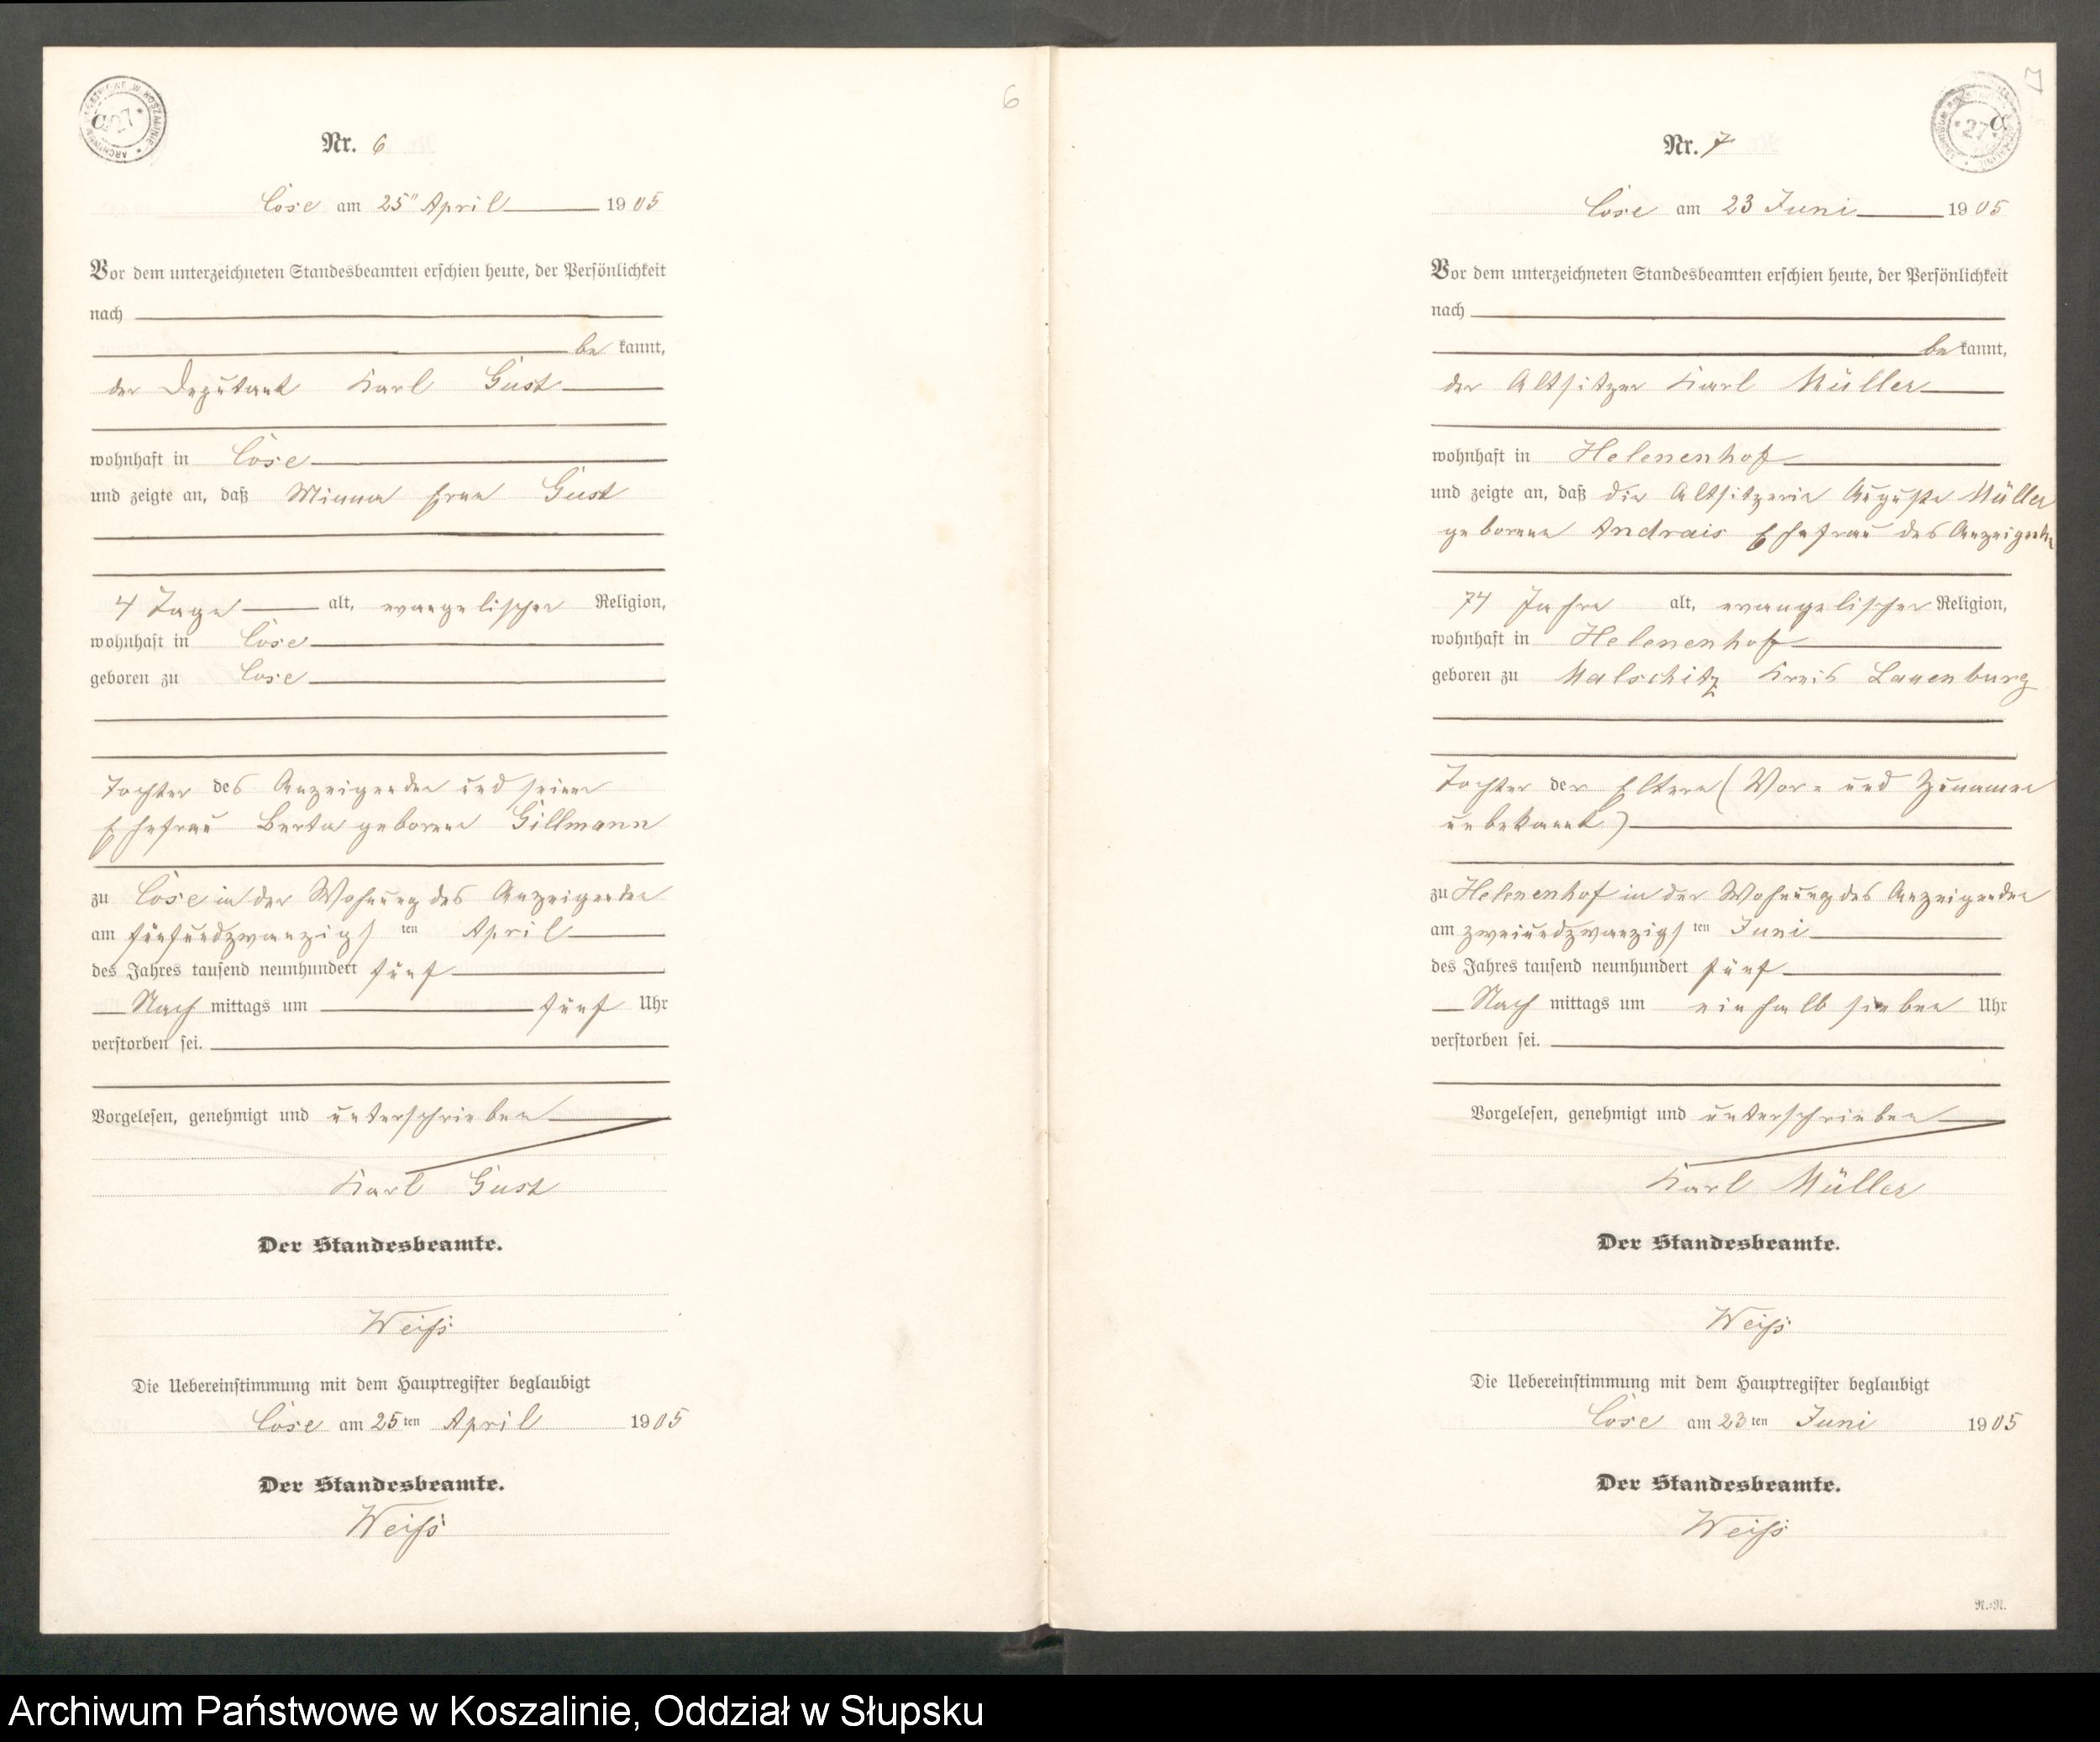 6
Nr. 6
Cose am 25ten April 1905
Vor dem unterzeichneten Standesbeamten erschien heute, der Persönlichkeit
nach
be kannt,
der Deputant Karl Gust
wohnhaft in Cose
und zeigte an, daß Minna Gust
4 Tage alt, evangelischer Religion,
wohnhaft in Cose
geboren zu Cose
Tochter des Anzeigenden und seiner
Ehefrau Berta geborene Gillmann
zu Cose in der Wohnung des Anzeigenden
am fünfundzwanzigsten April
des Jahres tausend neunhundert fünf
Nach mittags um fünf Uhr
verstorben sei.
Vorgelesen, genehmigt und unterschrieben
Karl Gust
Der Standesbeamte.
Weiß
Die Uebereinstimmung mit dem Hauptregister beglaubigt
Cose am 25ten April 1905
Der Standesbeamte.
Weiß
7
Nr. 7
Cose am 23 Juni 1905
Vor dem unterzeichneten Standesbeamten erschien heute, der Persönlichkeit
nach
be kannt,
der Altsitzer Karl Müller
wohnhaft in Helenenhof
und zeigte an, daß die Altsitzerin Auguste Müller
geborene Andrais Ehefrau des Anzeigenden
74 Jahre alt, evangelischer Religion,
wohnhaft in Helenenhof
geboren zu Malschitz Kreis Lauenburg
Tochter der Eltern (Vor- und Zunamen
unbekannt)
zu Helenenhof in der Wohnung des Anzeigenden
am zweiundzwanzigsten Juni
des Jahres tausend neunhundert fünf
Nach mittags um einhalb sieben Uhr
verstorben sei.
Vorgelesen, genehmigt und unterschrieben
Karl Müller
Der Standesbeamte.
Weiß
Die Uebereinstimmung mit dem Hauptregister beglaubigt
Cose am 23ten Juni 1905
Der Standesbeamte.
Weiß
N.=N.
Archiwum Państwowe w Koszalinie, Oddział w Słupsku